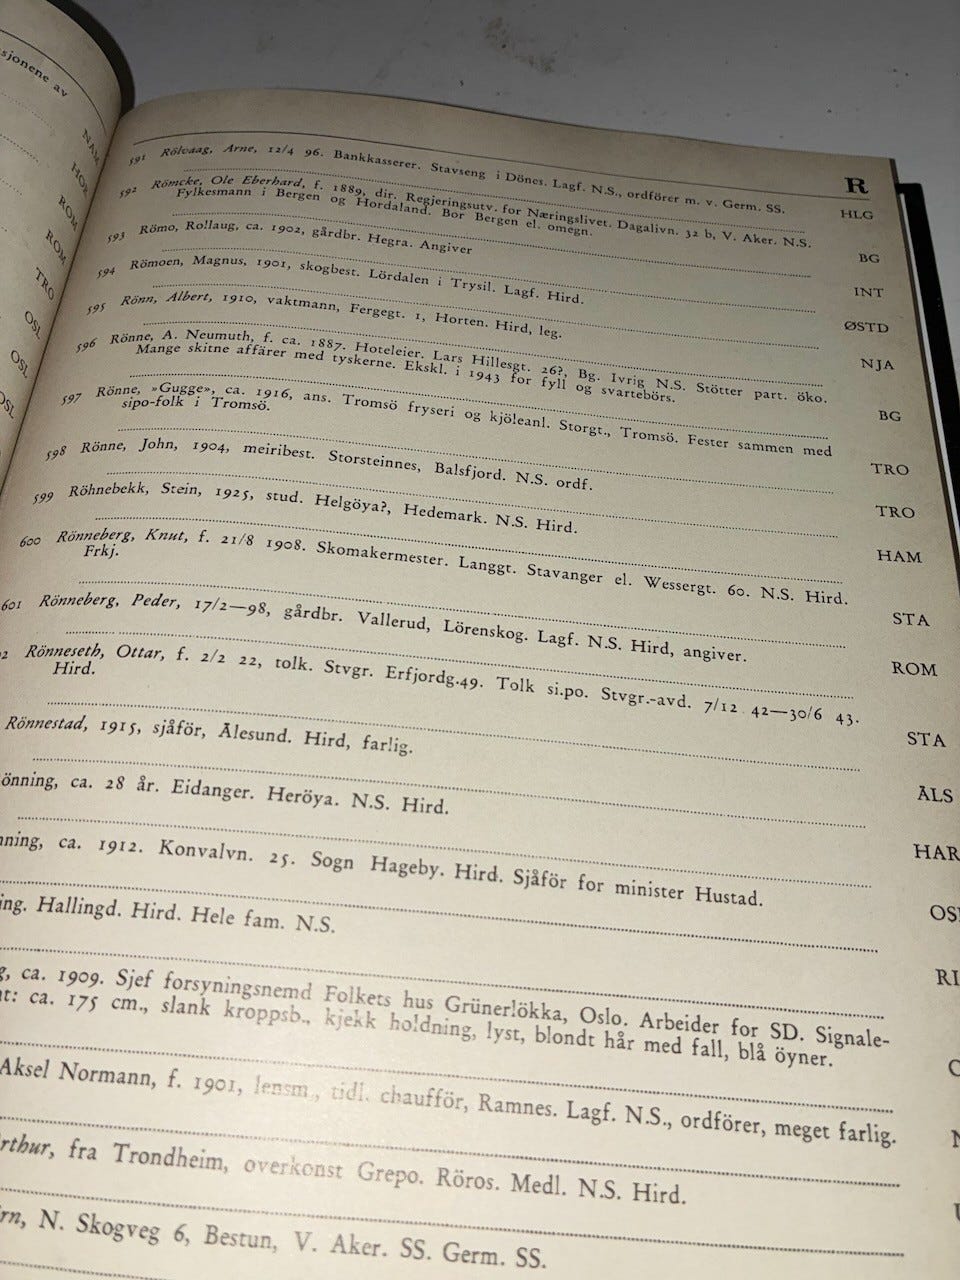 sjonene av
NAM
HOR
ROM
ROM
TRO
OSL
OSL
OSL
R
591 Rölvaag, Arne, 12/4 96. Bankkasserer. Stavseng i Dönes. Lagf. N.S., ordförer m. v. Germ. SS. HLG
592 Römcke, Ole Eberhard, f. 1889, dir. Regjeringsutv. for Næringslivet. Dagalivn. 32 b, V. Aker. N.S.
Fylkesmann i Bergen og Hordaland. Bor Bergen el. omegn. BG
593 Römo, Rollaug, ca. 1902, gårdbr. Hegra. Angiver INT
594 Römoen, Magnus, 1901, skogbest. Lördalen i Trysil. Lagf. Hird. ØSTD
595 Rönn, Albert, 1910, vaktmann, Fergegt. 1, Horten. Hird, leg. NJA
596 Rönne, A. Neumuth, f. ca. 1887. Hoteleier. Lars Hillesgt. 26?, Bg. Ivrig N.S. Stötter part. öko.
Mange skitne affärer med tyskerne. Ekskl. i 1943 for fyll og svartebörs. BG
597 Rönne, »Gugge», ca. 1916, ans. Tromsö fryseri og kjöleanl. Storgt., Tromsö. Fester sammen med
sipo-folk i Tromsö. TRO
598 Rönne, John, 1904, meiribest. Storsteinnes, Balsfjord. N.S. ordf. TRO
599 Röhnebekk, Stein, 1925, stud. Helgöya?, Hedemark. N.S. Hird. HAM
600 Rönneberg, Knut, f. 21/8 1908. Skomakermester. Langgt. Stavanger el. Wessergt. 60. N.S. Hird.
Frkj. STA
601 Rönneberg, Peder, 17/2—98, gårdbr. Vallerud, Lörenskog. Lagf. N.S. Hird, angiver. ROM
2 Rönneseth, Ottar, f. 2/2 22, tolk. Stvgr. Erfjordg.49. Tolk si.po. Stvgr.-avd. 7/12 42—30/6 43.
Hird. STA
Rönnestad, 1915, sjåför, Ålesund. Hird, farlig. ÅLS
önning, ca. 28 år. Eidanger. Heröya. N.S. Hird. HAR
nning, ca. 1912. Konvalvn. 25. Sogn Hageby. Hird. Sjåför for minister Hustad. OSL
ing. Hallingd. Hird. Hele fam. N.S. RI
g, ca. 1909. Sjef forsyningsnemd Folkets hus Grünerlökka, Oslo. Arbeider for SD. Signale-
nt: ca. 175 cm., slank kroppsb., kjekk holdning, lyst, blondt hår med fall, blå öyner.
Aksel Normann, f. 1901, lensm., tidl. chaufför, Ramnes. Lagf. N.S., ordförer, meget farlig.
rthur, fra Trondheim, overkonst Grepo. Röros. Medl. N.S. Hird.
rn, N. Skogveg 6, Bestun, V. Aker. SS. Germ. SS.